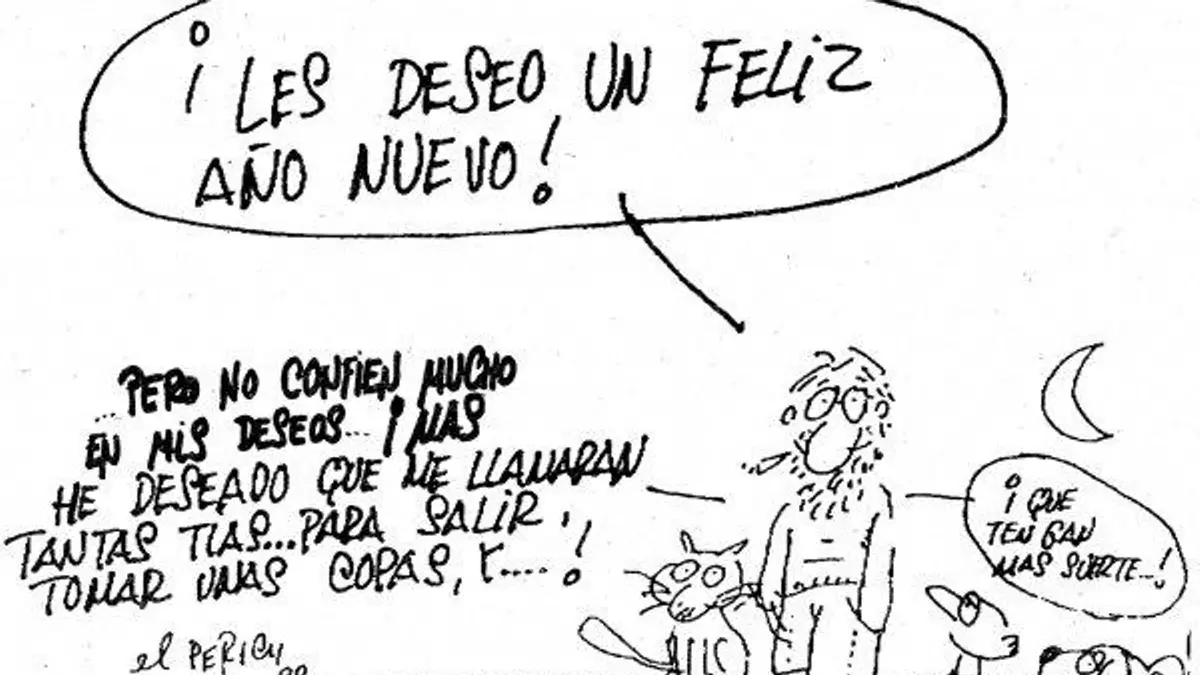 ¡ LES DESEO UN FELIZ
AÑO NUEVO !
... PERO NO CONFIEN MUCHO
EN MIS DESEOS... ¡ MAS
HE DESEADO QUE ME LLAMARAN
TANTAS TIAS... PARA SALIR,
TOMAR UNAS COPAS, Y.... !
¡ QUE
TENGAN
MAS SUERTE...!
el PERICH